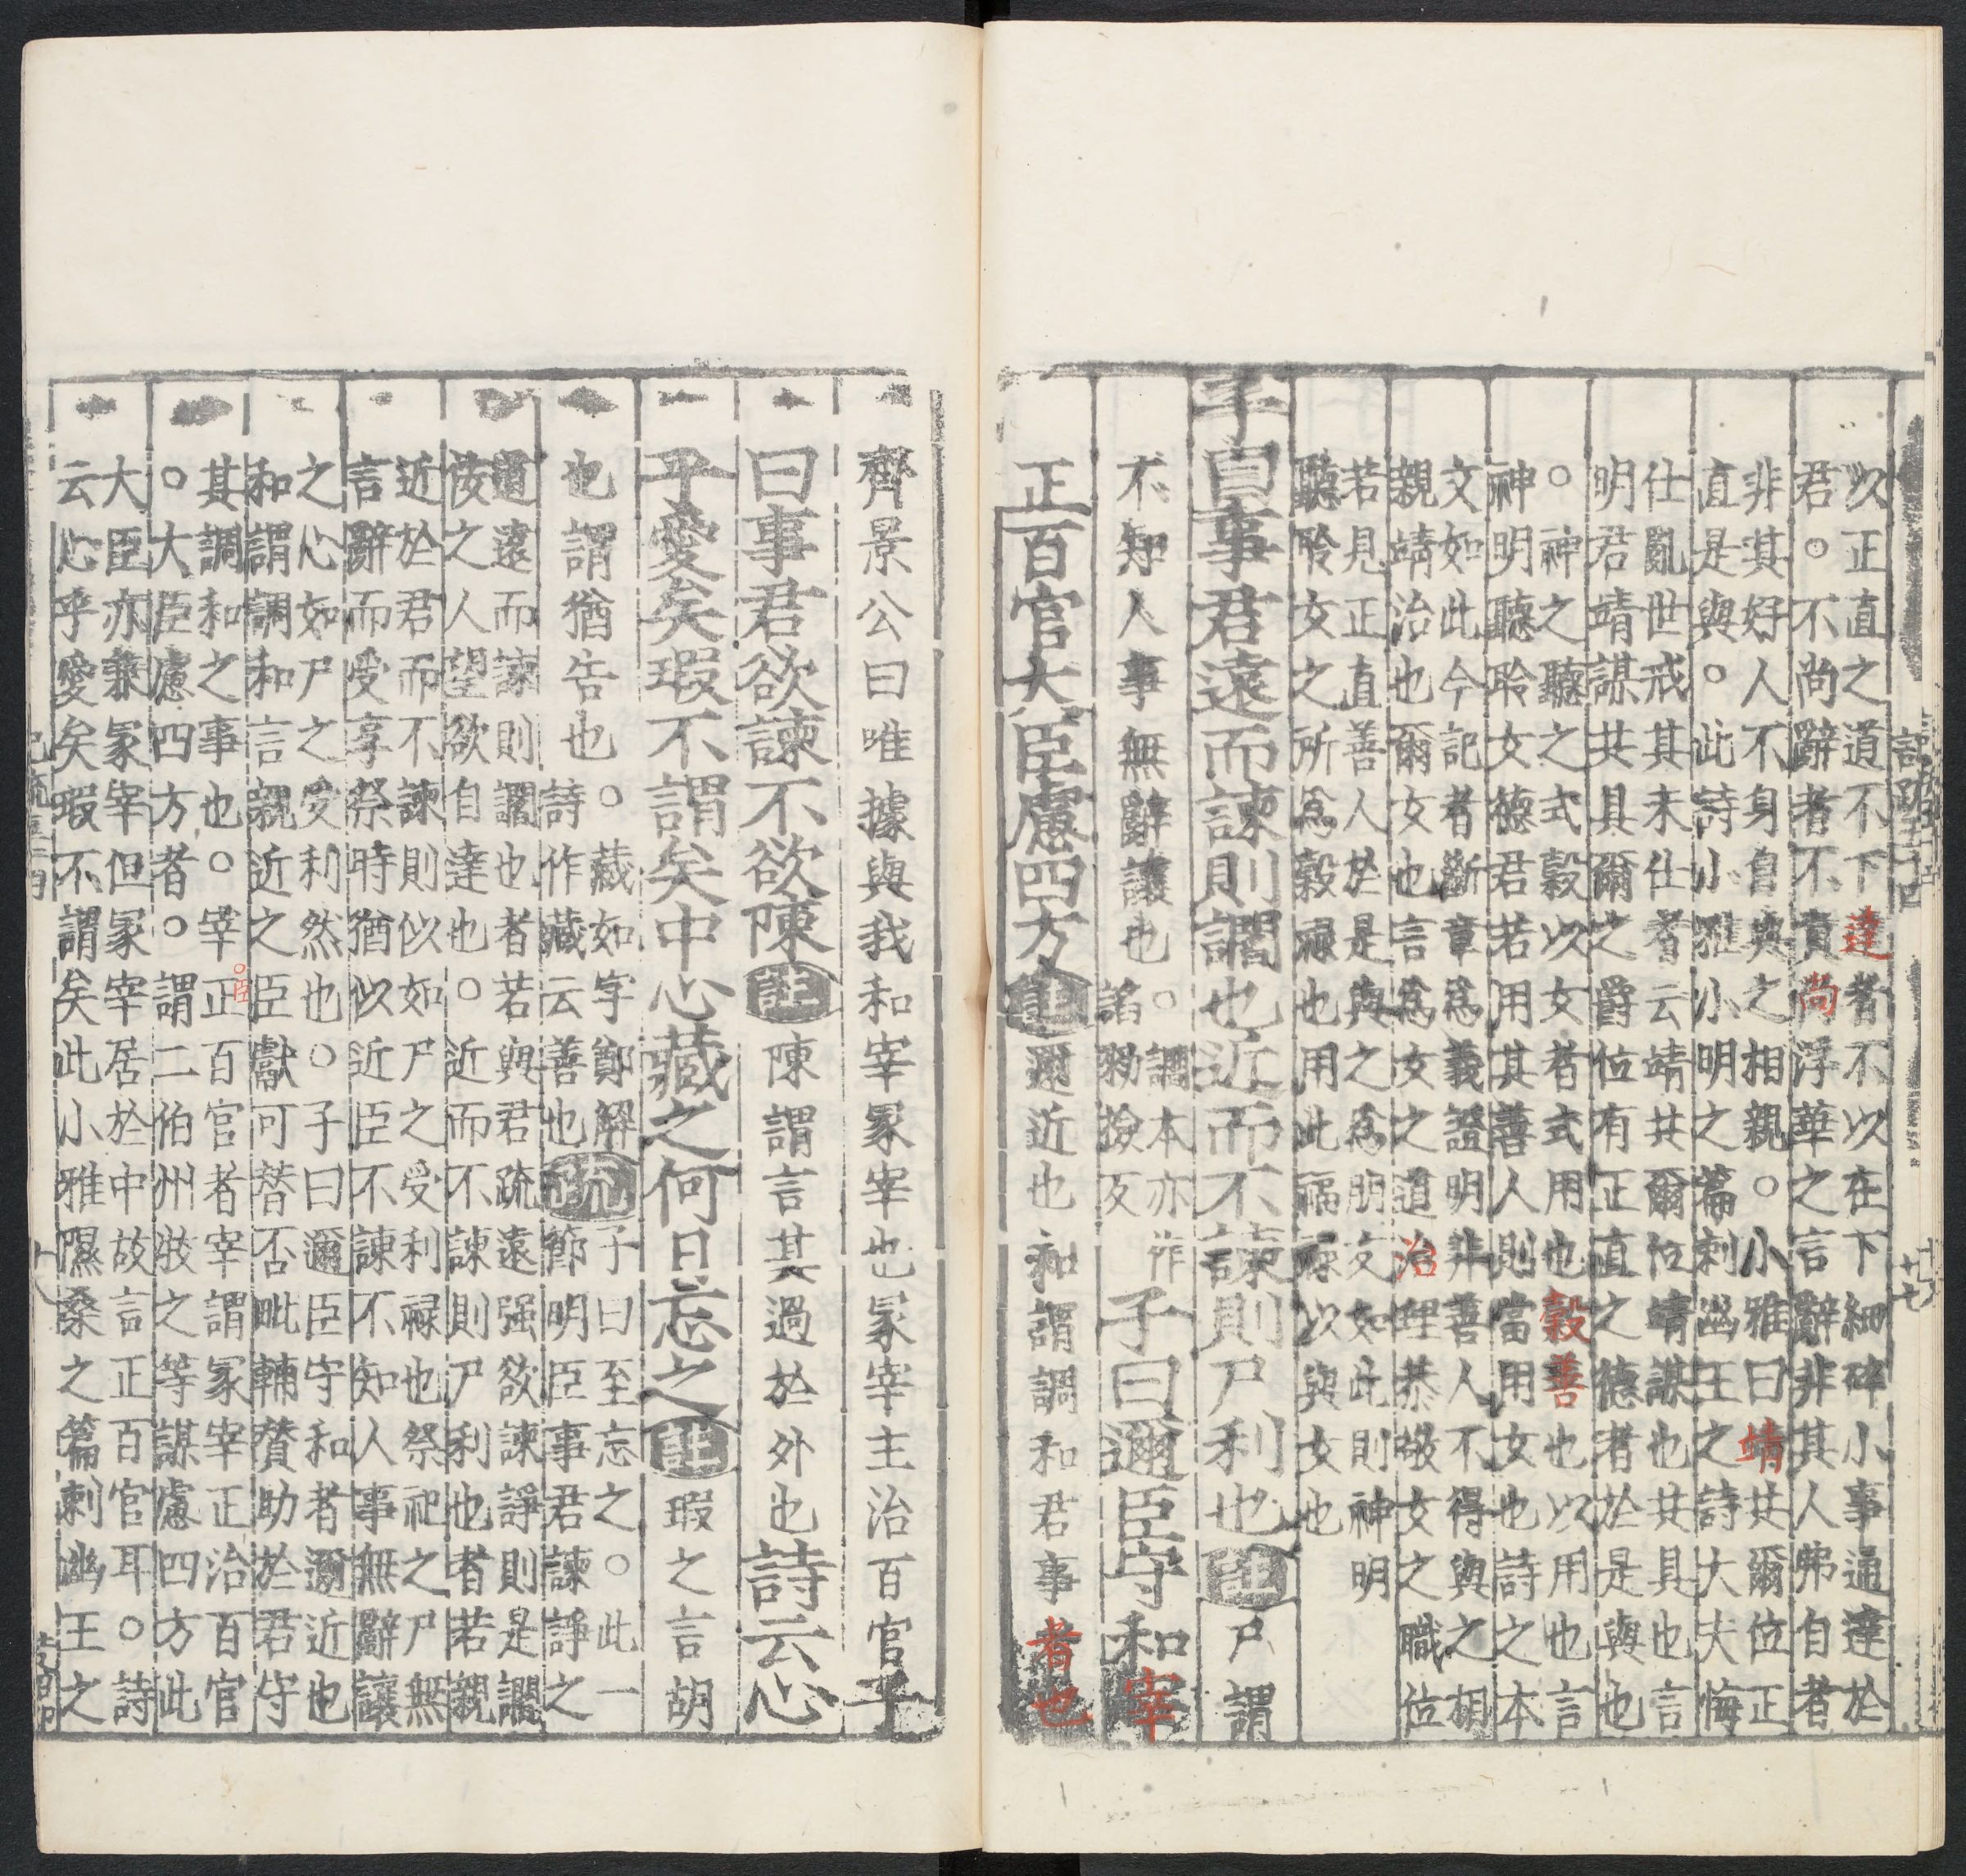 以正直之道不下達者不以在下細碎小事通達於
君○不尚辭者不貴尚浮華之言辭非其人弗自者
非其好人不身自與之相親○小雅曰靖共爾位正
直是與○此詩小雅小明之篇刺幽王之詩大夫悔
仕亂世戒其未仕者云靖共爾位靖謀也共具也言
明君靖謀共具爾之爵位有正直之德者於是與也
○神之聽之式穀以女者式用也穀善也以用也言
神明聽聆女德君若用其善人則當用女也詩之本
文如此今記者斷章爲義證明非善人不得與之相
親靖治也爾女也言爲女之道治理恭敬女之職位
若見正直善人於是與之爲朋友如此則神明
聽聆女之所爲穀祿也用此福祿以與女也
子曰事君遠而諫則讇也近而不諫則尸利也 註 尸謂
不知人事無辭讓也○讇本亦作
諂勑撿反
子曰邇臣守和宰
正百官大臣慮四方 註 邇近也和謂調和君事者也
齊景公曰唯據與我和宰冢宰也冢宰主治百官子
曰事君欲諫不欲陳 註 陳謂言其過於外也詩云心
乎愛矣瑕不謂矣中心藏之何日忘之 註 瑕之言胡
也謂猶告也○藏如字鄭解
詩作臧云善也 疏 子曰至忘之○此一
節明臣事君諫諍之
道遠而諫則讇也者若與君疏遠强欲諫諍則是讇
佞之人望欲自達也○近而不諫則尸利也者若親
近於君而不諫則似如尸之受利祿也祭祀之尸無
言辭而受享祭時猶似近臣不諫不知人事無辭讓
之心如尸之受利然也○子曰邇臣守和者邇近也
和謂調和言親近之臣獻可替否毗輔贊助於君守
其調和之事也○宰正百官者宰謂冢宰正治百官
○大臣慮四方者○謂二伯州牧之等謀慮四方此
大臣亦兼冢宰但冢宰居於中故言正百官耳○詩
云心乎愛矣瑕不謂矣此小雅隰桑之篇刺幽王之